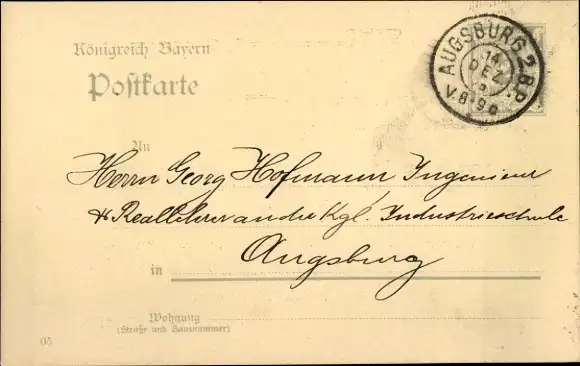 Königreich Bayern
Postkarte
AUGSBURG 2 B.P.
14
DEZ.
V.8-9
An
Herrn Georg Hofmann Ingenieur
& Reallehrer an der Kgl. Industrieschule
Augsburg
in
Wohnung
(Straße und Hausnummer)
05